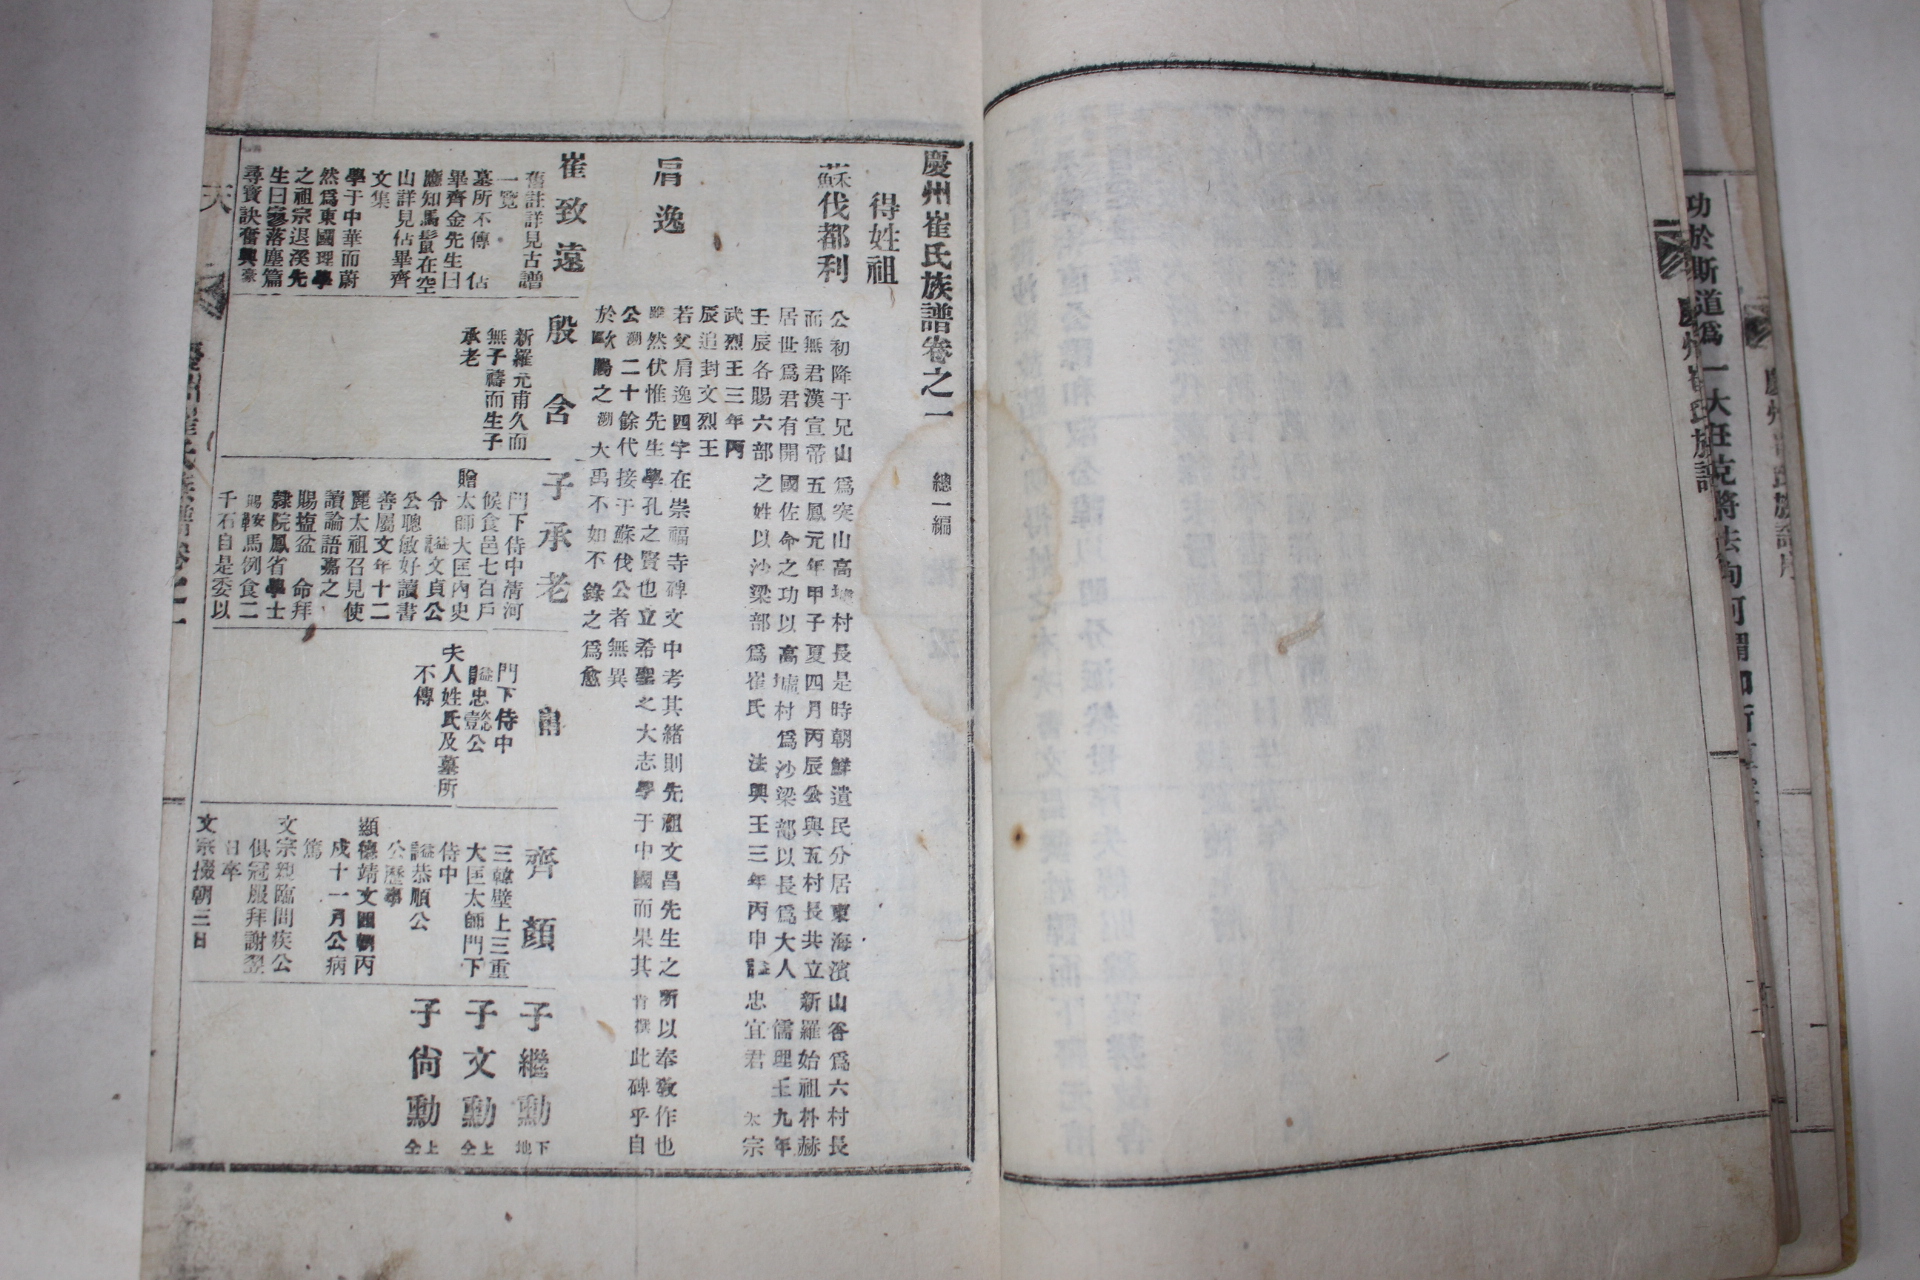 慶州崔氏族譜卷之一
總一編
得姓祖
蘇伐都利
公初降于兄山爲突山高墟村長是時朝鮮遺民分居東海濱山谷爲六村長
而無君漢宣帝五鳳元年甲子夏四月丙辰公與五村長共立新羅始祖朴赫
居世爲君有開國佐命之功以高墟村爲沙梁部以長爲大人 儒理王九年
壬辰各賜六部之姓以沙梁部爲崔氏 法興王三年丙申諡忠宜君 太宗
武烈王三年丙
辰追封文烈王
肩逸
若父肩逸四字在崇福寺碑文中考其緒則先祖文昌先生之所以奉敎作也
雖然伏惟先生學孔之賢也立希聖之大志學于中國而果其肯撰此碑乎自
公溯二十餘代接于蘇伐公者無異
於歐陽之溯大禹不如不錄之爲愈
崔致遠
舊註詳見古譜
一覽
墓所不傳 佔
畢齊金先生曰
應知馬鬣在空
山詳見佔畢齊
文集
學于中華而蔚
然爲東國理學
之祖宗退溪先
生曰寥落塵篇
尋寶訣奮興豪
殷含
新羅元甫久而
無子禱而生子
承老
子承老
門下侍中清河
候食邑七百戶
贈太師大匡內史
令 諡文貞公
公聰敏好讀書
善屬文年十二
麗太祖召見使
讀論語嘉之
賜塩盆 命拜
隷院鳳省學士
賜鞍馬例食二
千石自是委以
肅
門下侍中
諡忠懿公
夫人姓氏及墓所
不傳
齊顏
三韓壁上三重
大匡太師門下
侍中
諡恭順公
公歷事
顯德靖文四朝丙
戌十一月公病
篤
文宗親臨問疾公
俱冠服拜謝翌
日卒
文宗掇朝三日
子繼勳 下地
子文勳 仝上
子尙勳 仝上
天
慶州崔氏族譜卷之一
一
慶州崔氏族譜
功於斯道爲一大